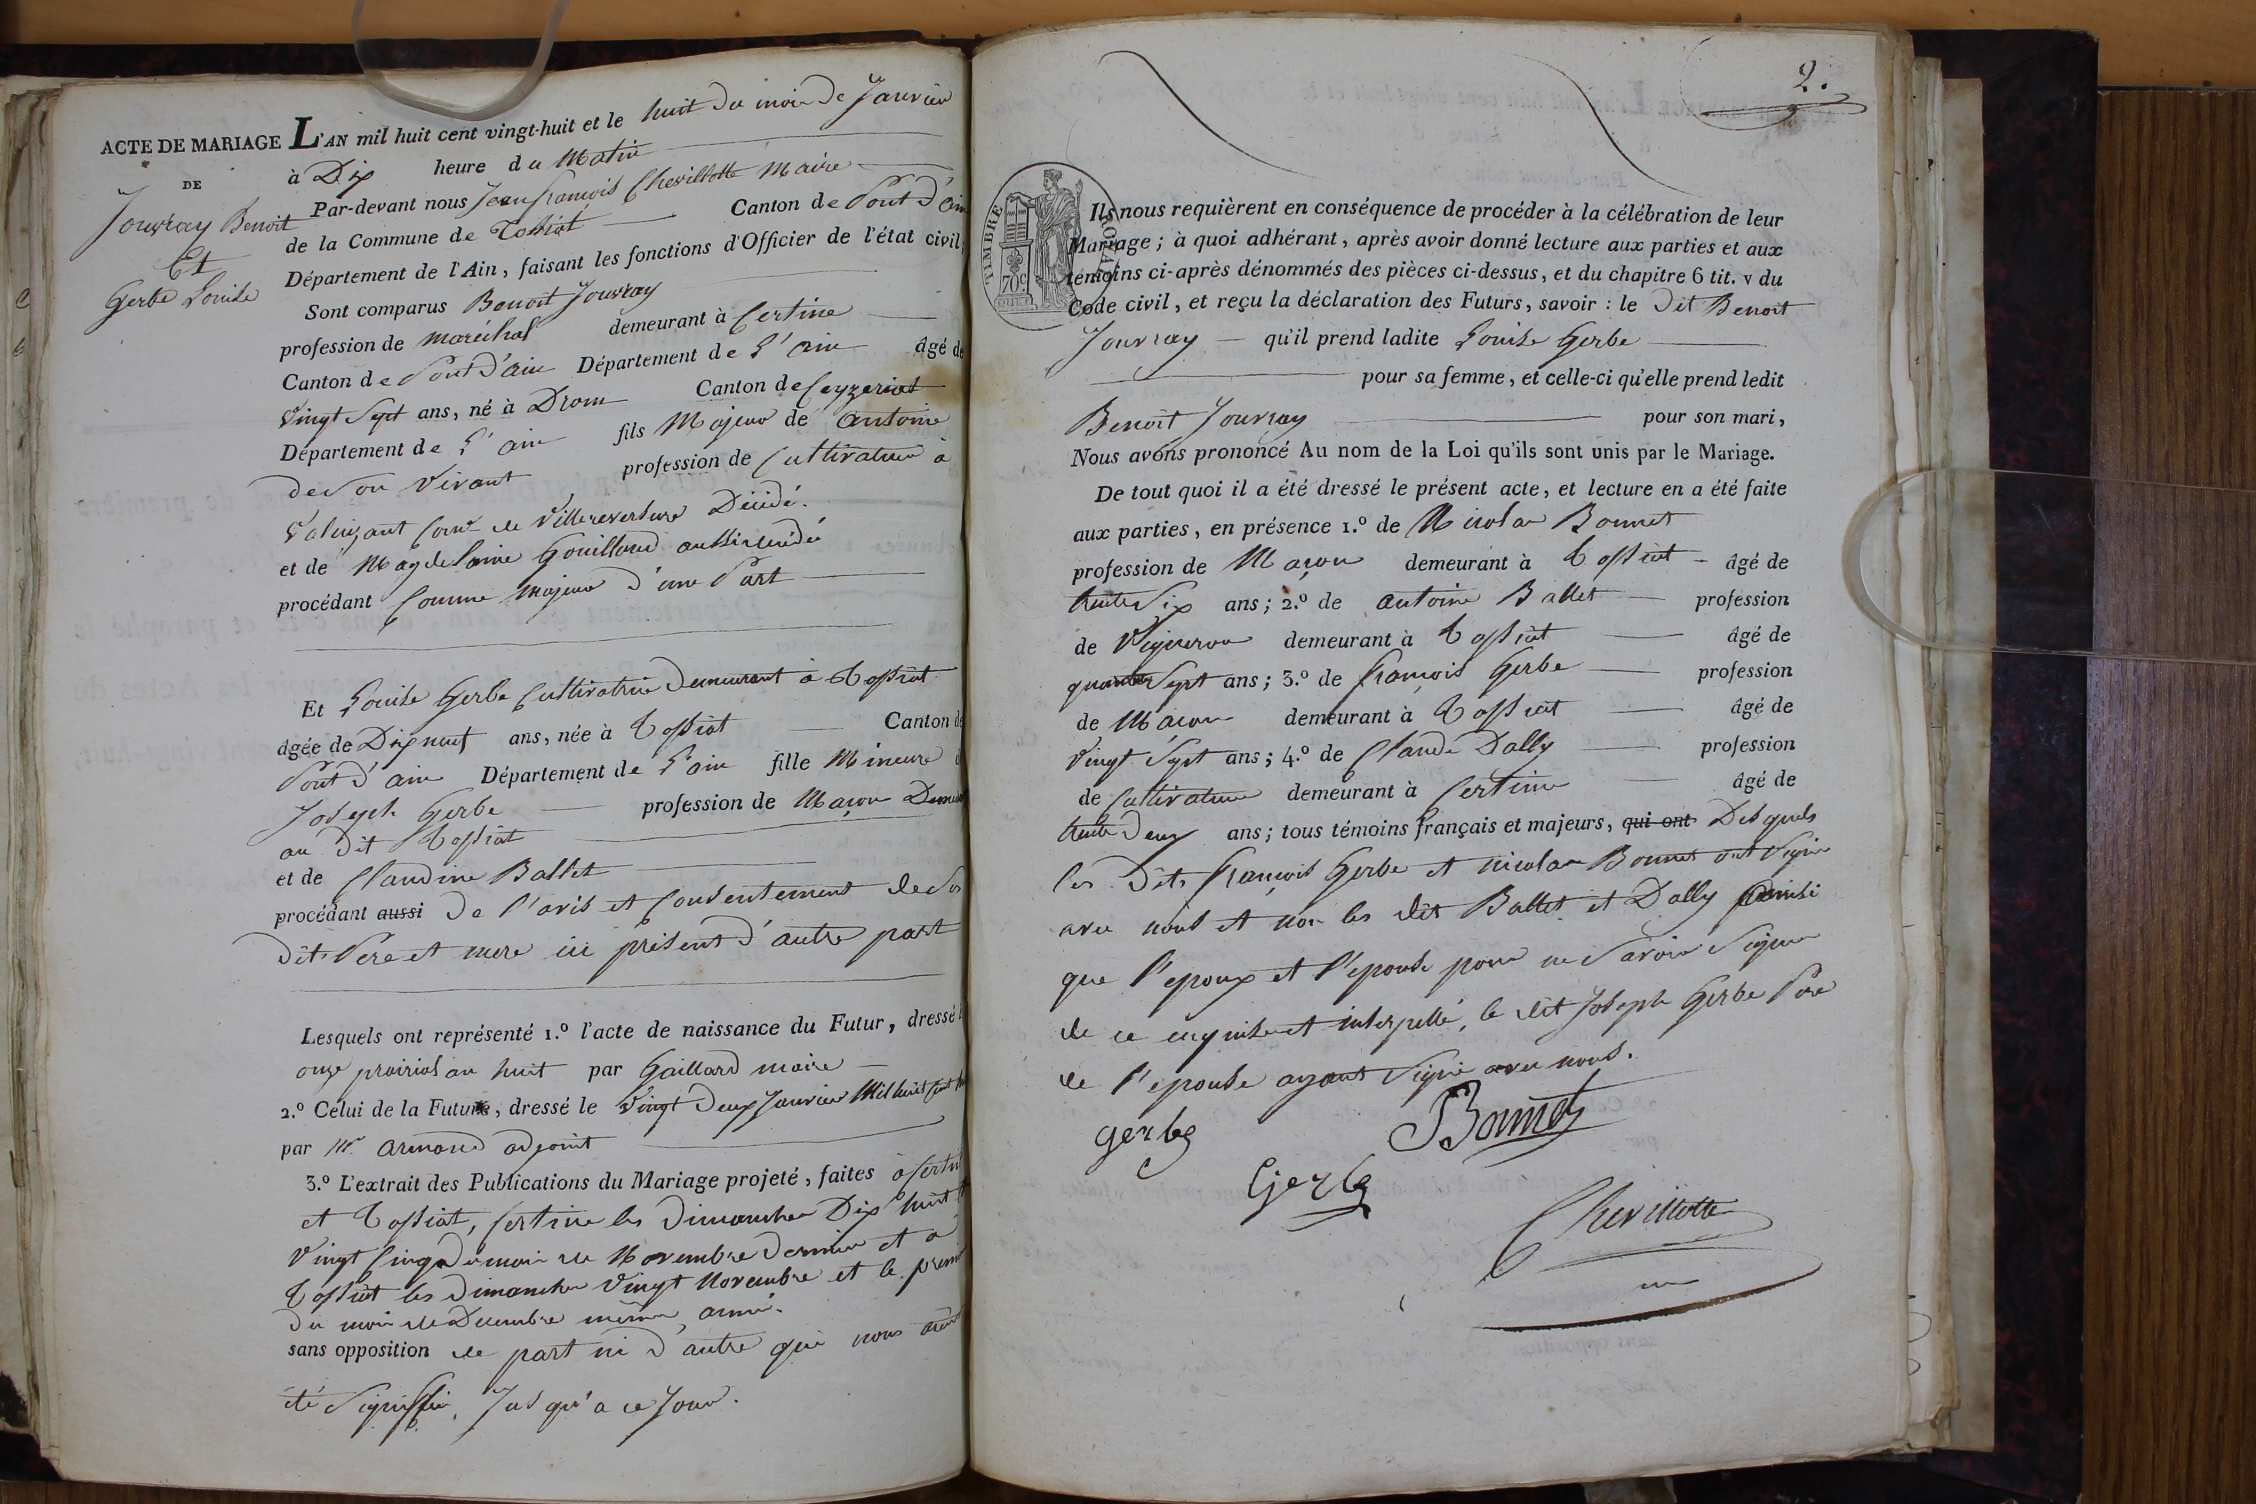 ACTE DE MARIAGE
DE
Jouvray Benoit
Et
Gerbe Louise
L'AN mil huit cent vingt-huit et le huit du mois de Janvier
à Dix heure du Matin
Par-devant nous Jean françois Chevillotte Maire
de la Commune de Tossiat Canton de Pont d'Ain
Département de l'Ain, faisant les fonctions d'Officier de l'état civil,
Sont comparus Benoit Jouvray
profession de maréchal demeurant à Certine
Canton de Pont d'ain Département de L'ain âgé de
Vingt Sept ans, né à Drom Canton de Ceyzeriat
Département de L'ain fils Majeur de Antoine
de son vivant profession de Cultivateur à
Valuizant Comne de Villereversure Décédé.
et de Magdelaine Gouilloud aussi décédée
procédant Comme Majeur d'une Part
Et Louise Gerbe Cultivatrice Demeurant à Tossiat
âgée de Dix neuf ans, née à Tossiat Canton de
Pont d'ain Département de L'ain fille Mineure
Joseph Gerbe profession de Maçon
au Dit Tossiat
et de Claudine Ballet
procédant aussi De l'avis et Consentement de Ses
Dits Père et mere ici présent d'autre part
Lesquels ont représenté 1.º l'acte de naissance du Futur, dressé
onze prairial an huit par Gaillard maire
2.º Celui de la Future, dressé le Vingt Deux Janvier Mil huit Cent
par Mr. Armand adjoint
3.º L'extrait des Publications du Mariage projeté, faites à
et Tossiat, Certine les Dimanches Dix huit
Vingt Cinq Du mois de Novembre Dernier et a
Tossiat les Dimanches Vingt Novembre et le
Du mois de Decembre même année.
sans opposition de part ni d'autre qui nous
été Signiffié, Jusqu'a ce Jour.
2.
TIMBRE ROYAL
70c
Ils nous requièrent en conséquence de procéder à la célébration de leur
Mariage; à quoi adhérant, après avoir donné lecture aux parties et aux
témoins ci-après dénommés des pièces ci-dessus, et du chapitre 6 tit. v du
Code civil, et reçu la déclaration des Futurs, savoir: le Dit Benoit
Jouvray qu'il prend ladite Louise Gerbe
pour sa femme, et celle-ci qu'elle prend ledit
Benoit Jouvray pour son mari,
Nous avons prononcé Au nom de la Loi qu'ils sont unis par le Mariage.
De tout quoi il a été dressé le présent acte, et lecture en a été faite
aux parties, en présence 1.º de Nicolas Bonnet
profession de Maçon demeurant à Tossiat âgé de
trente Six ans; 2.º de Antoine Ballet profession
de Vigneron demeurant à Tossiat âgé de
quarante Sept ans; 3.º de françois Gerbe profession
de Maçon demeurant à Tossiat âgé de
Vingt Sept ans; 4.º de Claude Dally profession
de Cultivateur demeurant à Certine âgé de
trente Deux ans; tous témoins français et majeurs, qui ont Desquels
les Dits françois Gerbe et nicolas Bonnet ont Signé
avec nous et non les dits Ballet et Dally
que l'epoux et l'epouse pour ne Savoir Signer
de ce enquise et interpellé, le dit Joseph Gerbe Pere
de l'epouse ayant Signé avec nous.
gerbe
Bonnet
Gerbe
Chevillotte